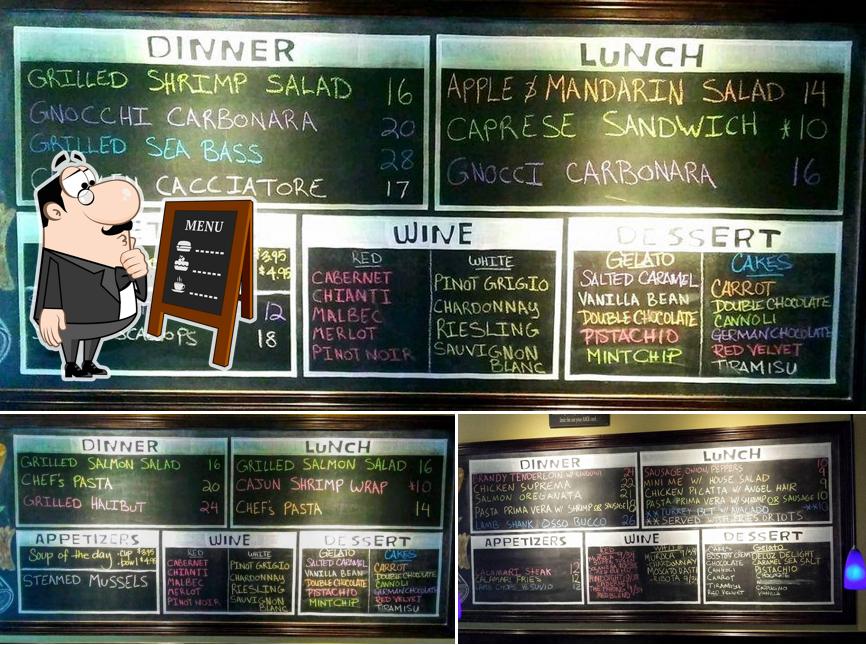 DINNER
GRILLED SHRIMP SALAD 16
GNOCCHI CARBONARA 20
GRILLED SEA BASS 28
CACCIATORE 17
LUNCH
APPLE & MANDARIN SALAD 14
CAPRESE SANDWICH *10
GNOCCI CARBONARA 16
MENU
$3.95
$4.95
12
18
WINE
RED
CABERNET
CHIANTI
MALBEC
MERLOT
PINOT NOIR
WHITE
PINOT GRIGIO
CHARDONNAY
RIESLING
SAUVIGNON
BLANC
DESSERT
GELATO
SALTED CARAMEL
VANILLA BEAN
DOUBLE CHOCOLATE
PISTACHIO
MINT CHIP
CAKES
CARROT
DOUBLE CHOCOLATE
CANNOLI
GERMAN CHOCOLATE
RED VELVET
TIRAMISU
DINNER
GRILLED SALMON SALAD 16
CHEF'S PASTA 20
GRILLED HALIBUT 24
LUNCH
GRILLED SALMON SALAD 16
CAJUN SHRIMP WRAP *10
CHEF'S PASTA 14
APPETIZERS
Soup of the day -cup $3.95
-bowl $4.95
STEAMED MUSSELS
WINE
RED
CABERNET
CHIANTI
MALBEC
MERLOT
PINOT NOIR
WHITE
PINOT GRIGIO
CHARDONNAY
RIESLING
SAUVIGNON
BLANC
DESSERT
GELATO
SALTED CARAMEL
VANILLA BEAN
DOUBLE CHOCOLATE
PISTACHIO
MINT CHIP
CAKES
CARROT
DOUBLE CHOCOLATE
CANNOLI
GERMAN CHOCOLATE
RED VELVET
TIRAMISU
DINNER
BRANDY TENDERLOIN 24
CHICKEN SUPREMA 22
SALMON OREGANATA 21
PASTA PRIMA VERA W/ SHRIMP OR SAUSAGE 18
LAMB SHANK OSSO BUCCO 26
LUNCH
SAUSAGE, ONION, PEPPERS 10
MINI ME W/ HOUSE SALAD 9
CHICKEN PICATTA W/ ANGEL HAIR 9
PASTA PRIMA VERA W/ SHRIMP OR SAUSAGE 10
**TURKEY BLT W/ AVACADO **10
**SERVED WITH FRIES OR TOTS
APPETIZERS
CALAMARI STEAK 12
CALAMARI FRIES 12
LAMB CHOPS VESUVIO 12
WINE
RED
WHITE
CHARDONNAY
DESSERT
CAKES
BOSTON CREAM
CHOCOLATE
CANNOLI
CARROT
TIRAMISU
RED VELVET
GELATO
DELUZ DELIGHT
CARAMEL SEA SALT
PISTACHIO
CHOCOLATE
VANILLA